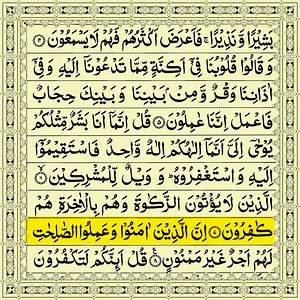 بَشِيْرًا وَّنَذِيْرًا ۚ فَاَعْرَضَ اَكْثَرُهُمْ فَهُمْ لَا يَسْمَعُوْنَ ۝۴
وَقَالُوْا قُلُوْبُنَا فِیْۤ اَكِنَّةٍ مِّمَّا تَدْعُوْنَاۤ اِلَيْهِ وَفِیْۤ
اٰذَانِنَا وَقْرٌ وَّمِنْۢ بَيْنِنَا وَبَيْنِكَ حِجَابٌ
فَاعْمَلْ اِنَّنَا عٰمِلُوْنَ ۝۵ قُلْ اِنَّمَاۤ اَنَا بَشَرٌ مِّثْلُكُمْ
يُوْحٰۤی اِلَیَّ اَنَّمَاۤ اِلٰهُكُمْ اِلٰهٌ وَّاحِدٌ فَاسْتَقِيْمُوْۤا
اِلَيْهِ وَاسْتَغْفِرُوْهُ ؕ وَوَيْلٌ لِّلْمُشْرِكِيْنَ ۝۶
الَّذِيْنَ لَا يُؤْتُوْنَ الزَّكٰوةَ وَهُمْ بِالْاٰخِرَةِ هُمْ
كٰفِرُوْنَ ۝۷ اِنَّ الَّذِيْنَ اٰمَنُوْا وَعَمِلُوا الصّٰلِحٰتِ
لَهُمْ اَجْرٌ غَيْرُ مَمْنُوْنٍ ۝۸ قُلْ اَىِٕنَّكُمْ لَتَكْفُرُوْنَ